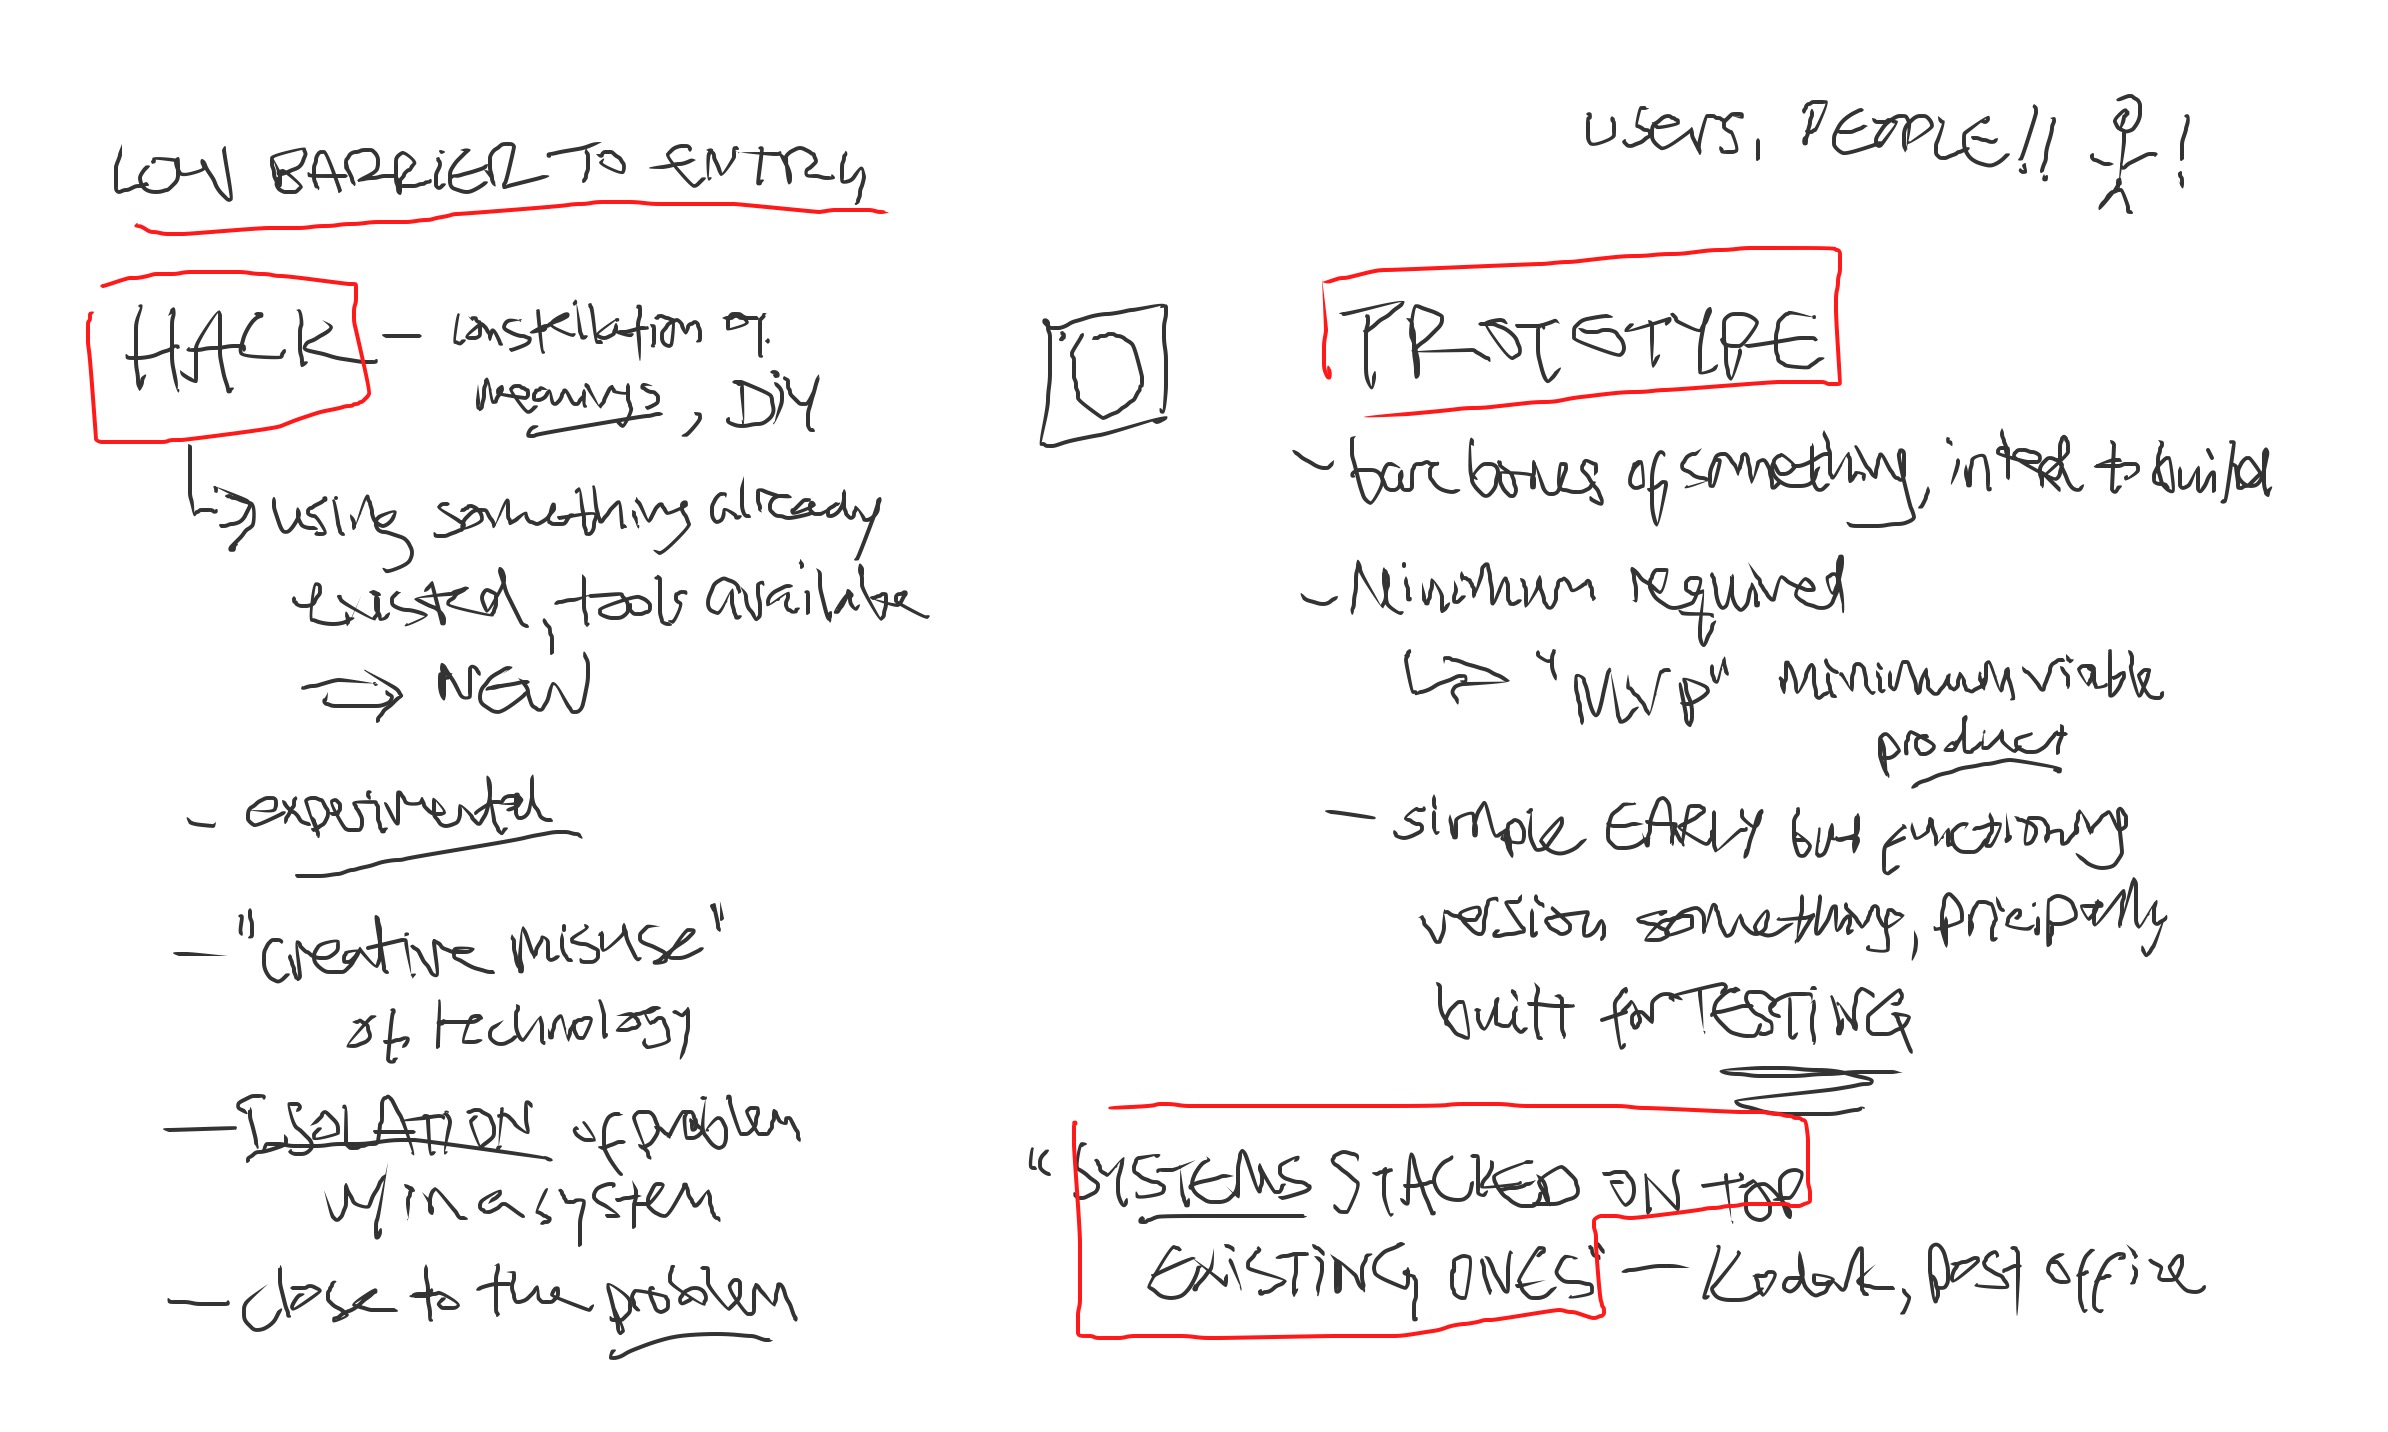 LOW BARRIER TO ENTRY
HACK - constellation of
meanings, DiY
using something already
existed, tools available
NEW
- experimental
- "creative misuse"
of technology
- ISOLATION of problem
w/in a system
- close to the problem
users, PEOPLE!! !
PROTOTYPE
- bare bones of something, inted to build
- Minimum required
"MVP" minimum viable
product
- simple EARLY but functioning
version something, pricipally
built for TESTING
"SYSTEMS STACKED ON TOP
EXISTING ONES" - Kodak, post office